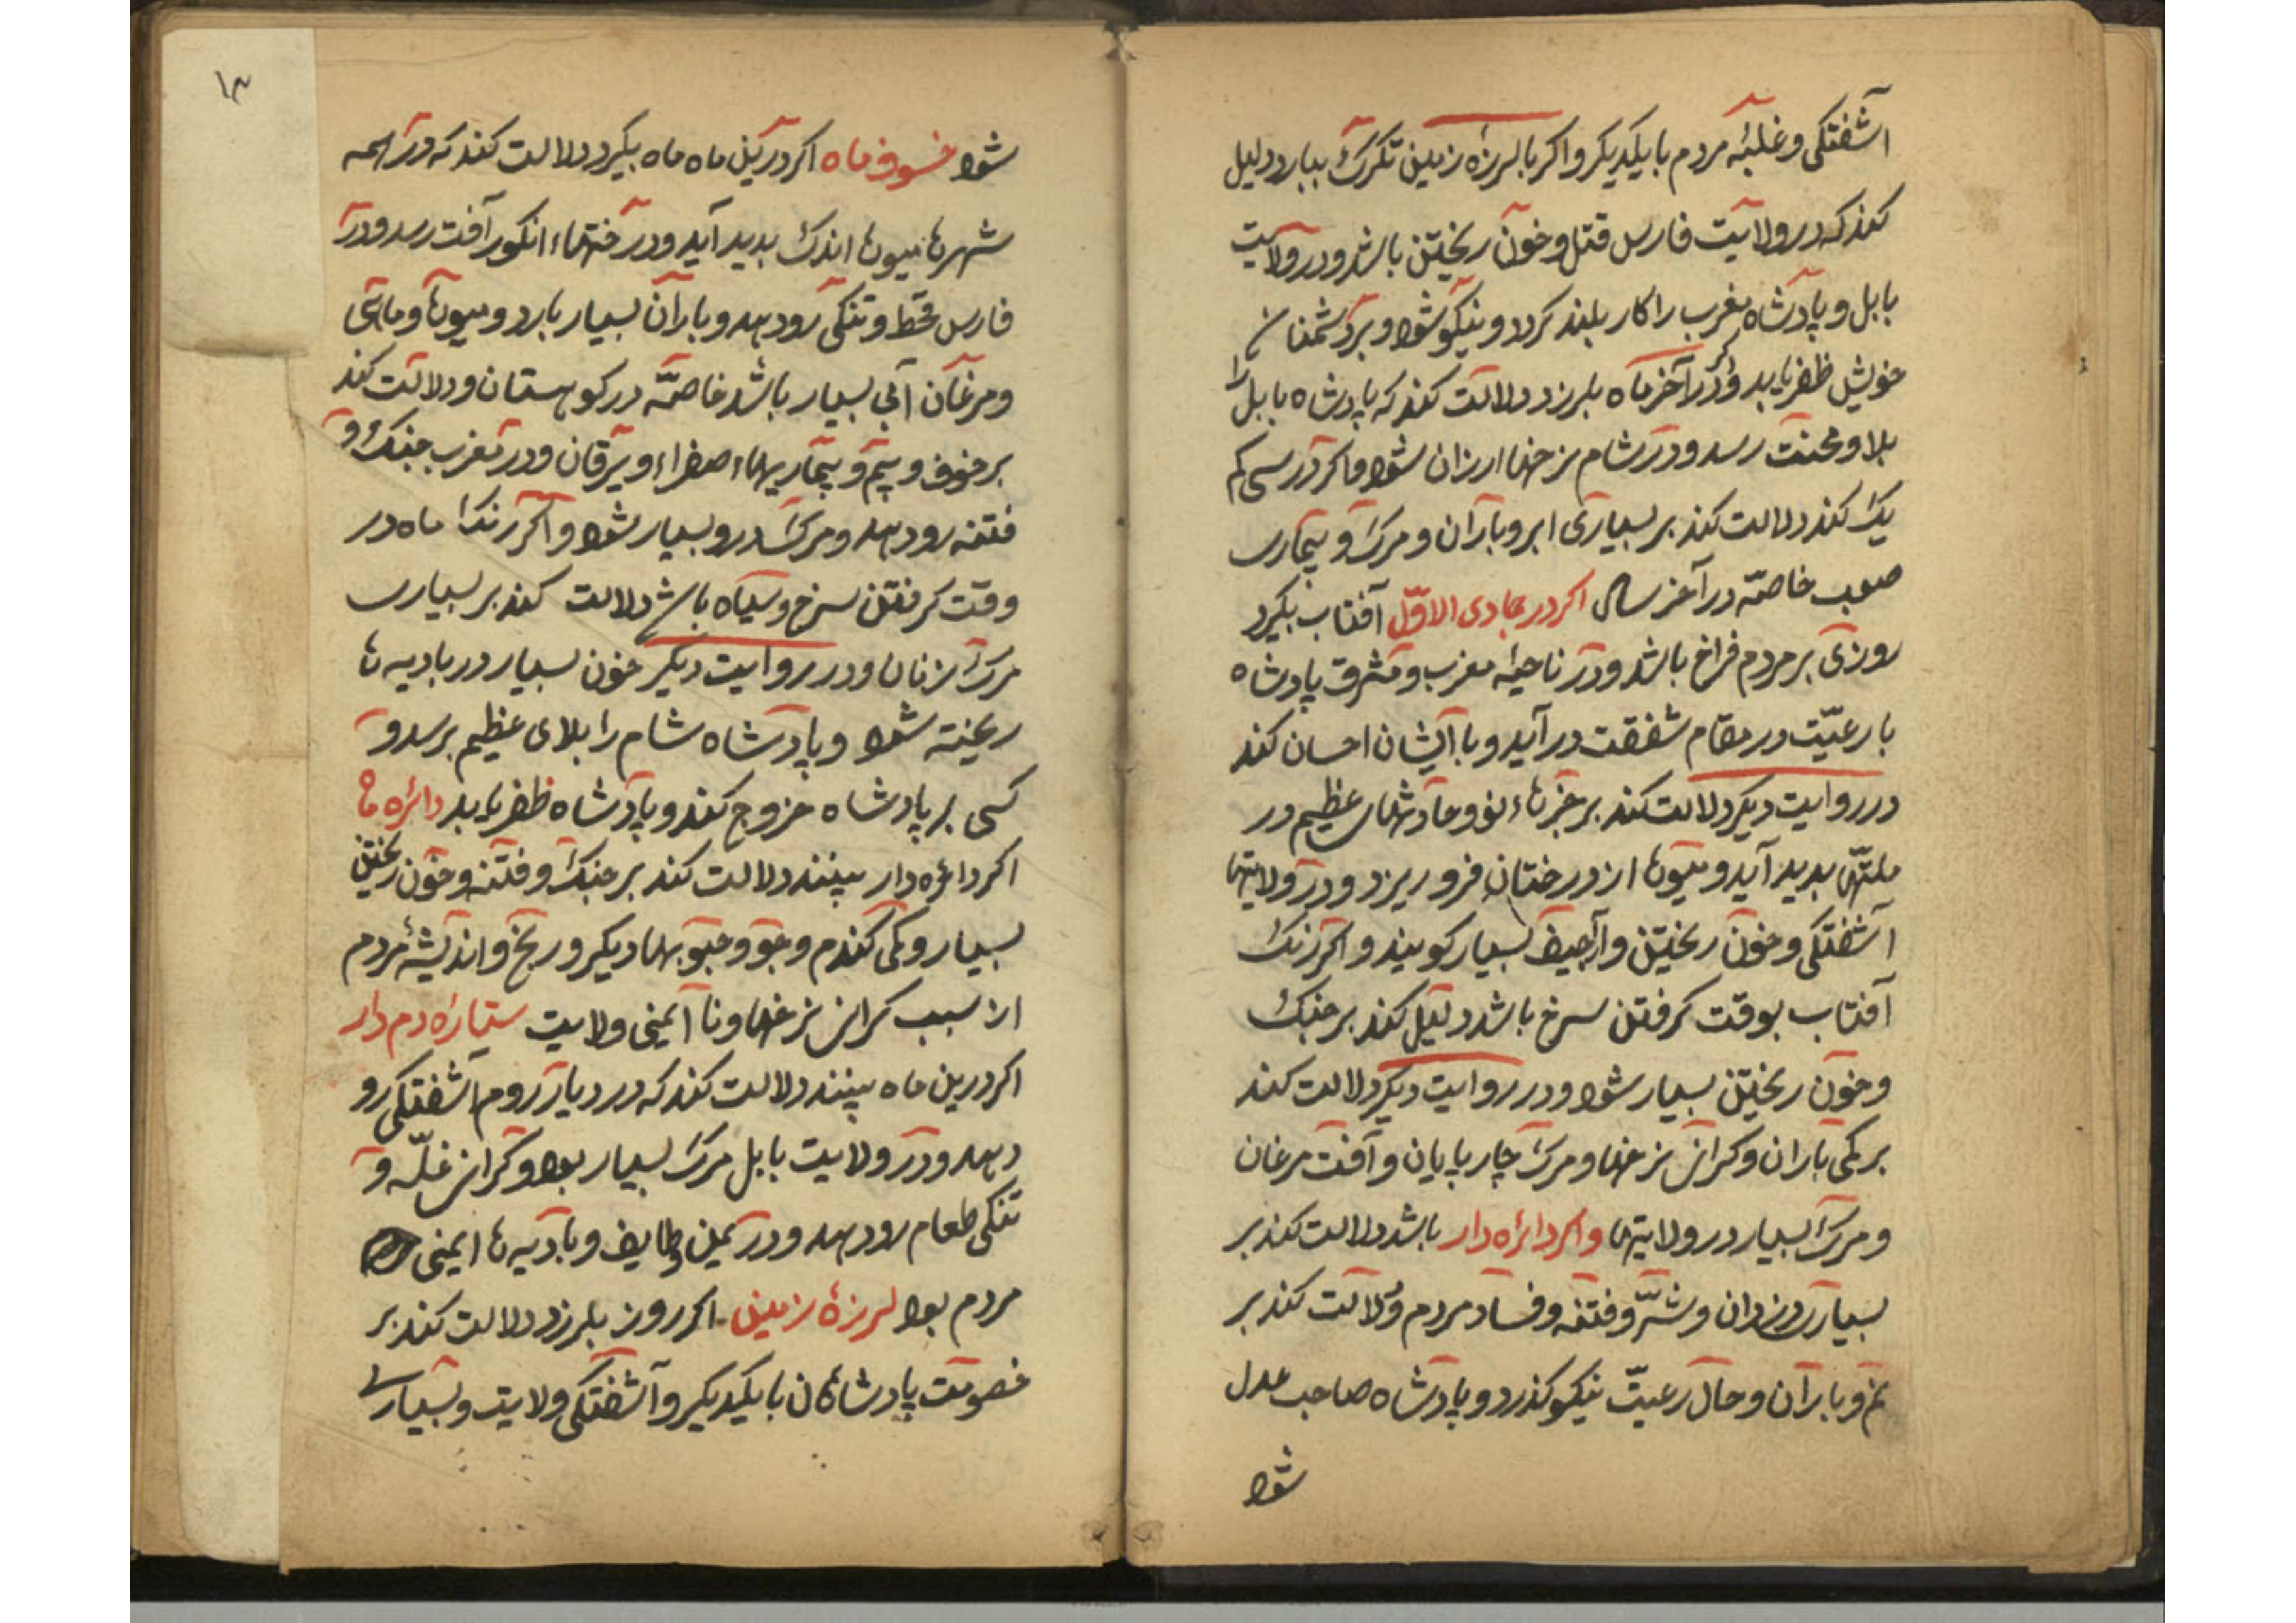 آشفتگی و غلبهٔ مردم با یکدیکر و اکر با لرزهٔ زمین تکرک ببارد دلیل
کند که در ولایت فارس قتل و خون ریختن باشد و در ولایت
بابل و پادشاه مغرب را کار بلند کردد و نیکو شود و بر دشمنان
خویش ظفر یابد و اکر در آخر ماه بلرزد دلالت کند که پادشاه بابل را
بلا و محنت رسد و در شام نرخها ارزان شود و اکر در
یک کند دلالت کند بر بسیاری ابر و باران و مرک و بیماری
صعب خاصّه در آخر سال اکر در جمادی الاوّل آفتاب بکیرد
روزی بر مردم فراخ باشد و در ناحیهٔ مغرب و مشرق پادشاه
با رعیّت در مقام شفقت در آید و با ایشان احسان کند
در روایت دیکر دلالت کند بر خبرهاء نو و حادثهای عظیم در
ملتها بدید آید و میوها از درختان فرو ریزد و در ولایتها
آشفتکی و خون ریختن و اراجیف بسیار کویند و اکر رنک
آفتاب بوقت کرفتن سرخ باشد دلیل کند بر جنک
و خون ریختن بسیار شود و در روایت دیکر دلالت کند
بر کمی باران و کرانی نرخها و مرک چارپایان و آفت مرغان
و مرک بسیار در ولایتها و اکر دائره دار باشد دلالت کند بر
بسیاری دزدان و شرّ و فتنه و فساد مردم و دلالت کند بر
نم و باران و حال رعیّت نیکو کذرد و پادشاه صاحب عدل
شود
۱۳
شود خسوف ماه اکر درین ماه ماه بکیرد دلالت کند که در همه
شهرها میوها اندک بدید آید و درختهاء انکور آفت رسد و در
فارس قحط و تنکی رو دهد و باران بسیار بارد و میوها و ماهی
و مرغان آبی بسیار باشد خاصّه در کوهستان و دلالت کند
بر خوف و بیم و بیماریهاء صفراء و یرقان و در مغرب جنک و
فتنه رو دهد و مرک درو بسیار شود و اکر رنک ماه در
وقت کرفتن سرخ و سیاه باشد دلالت کند بر بسیاری
مرک زنان و در روایت دیکر خون بسیار در بادیه ها
ریخته شود و پادشاه شام را بلای عظیم برسد و
کسی بر پادشاه خروج کند و پادشاه ظفر یابد دائره ماه
اکر دائره دار بینند دلالت کند بر جنک و فتنه و خون ریختن
بسیار و کمی کندم و جو و حبوبها دیکر و رنج و اندیشهٔ مردم
از سبب کرانی نرخها و نا ایمنی ولایت ستاره دم دار
اکر درین ماه بینند دلالت کند که در دیار روم آشفتکی رو
دهد و در ولایت بابل مرک بسیار بود و کرانی غلّه و
تنکی طعام رو دهد و در یمن و طایف و بادیه ها ایمنی
مردم بود لرزهٔ زمین اکر روز بلرزد دلالت کند بر
خصومت پادشاهان با یکدیکر و آشفتکی ولایت و بسیاری